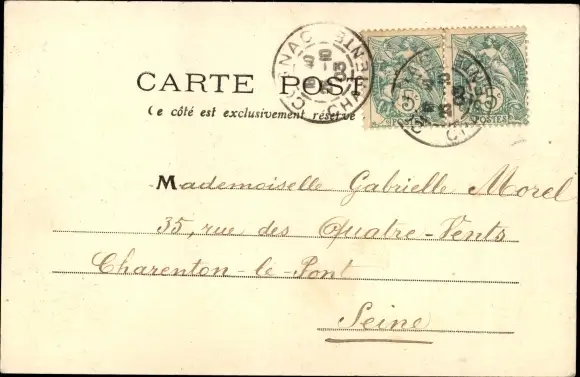 CARTE POST
Ce côté est exclusivement réservé
COGNAC
CHARENTE
5
5
POSTES
Mademoiselle Gabrielle Morel
35, rue des Quatre-Vents
Charenton-le-Pont
Seine